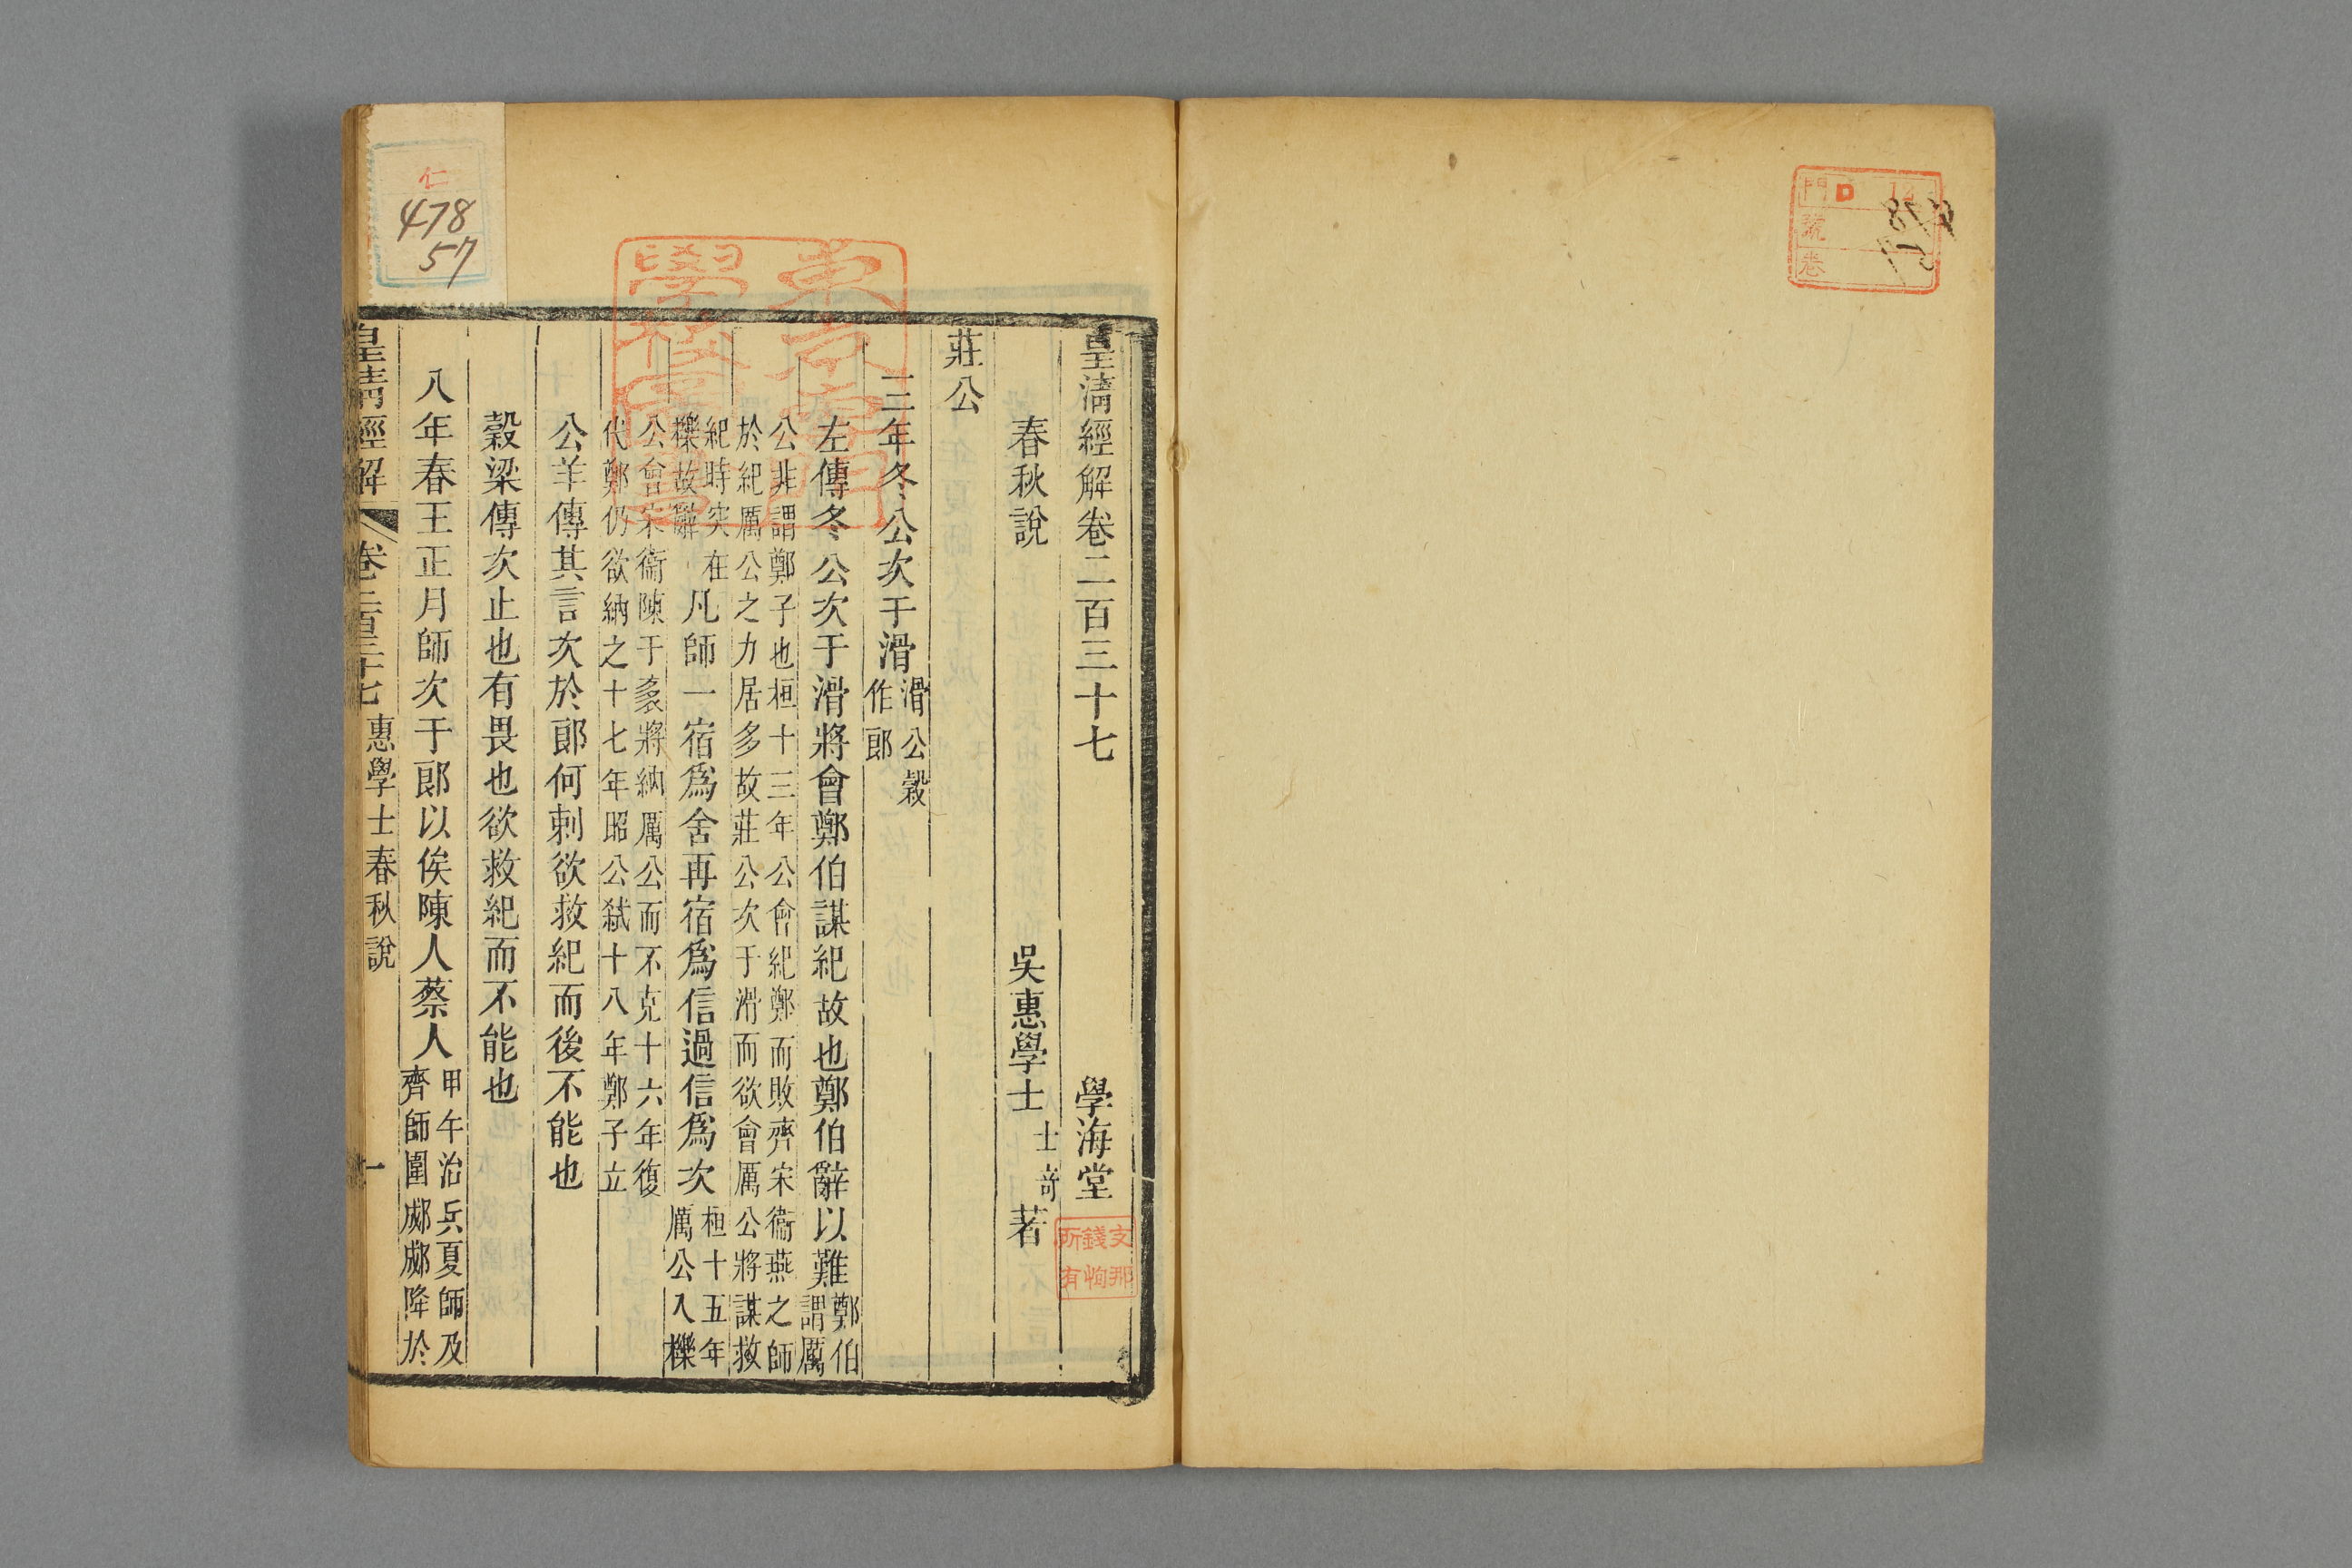 門 D 12
號
卷
皇清經解卷二百三十七 學海堂
春秋說 吳惠學士士奇著
莊公
三年冬公次于滑滑公穀作郎
左傳冬公次于滑將會鄭伯謀紀故也鄭伯辭以難鄭伯謂厲
公非謂鄭子也桓十三年公會紀鄭而敗齊宋衞燕之師
於紀厲公之力居多故莊公次于滑而欲會厲公將謀救
紀時突在櫟故辭凡師一宿爲舍再宿爲信過信爲次桓十五年厲公入櫟
公會宋衞陳于袲將納厲公而不克十六年復
伐鄭仍欲納之十七年昭公弑十八年鄭子立
公羊傳其言次於郎何刺欲救紀而後不能也
穀梁傳次止也有畏也欲救紀而不能也
八年春王正月師次于郎以俟陳人蔡人甲午治兵夏師及齊師圍郕郕降於
皇清經解 卷二百三十七 惠學士春秋說 一
仁
478
57
文那
錢恂
所有